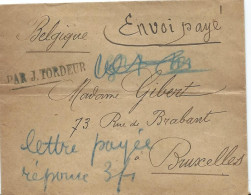 Belgique
Envoi payé
PAR J. TORDEUR
Madame Gibert
73 Rue de Brabant
à Bruxelles
lettre payée
réponse 3f